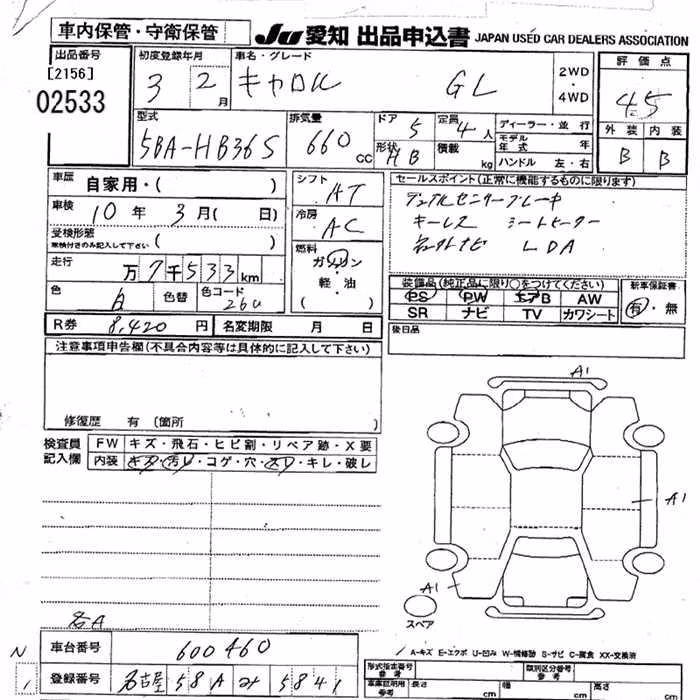 車内保管・守衛保管
JU 愛知 出品申込書 JAPAN USED CAR DEALERS ASSOCIATION
出品番号 [2156] 02533
初度登録年月 3 2月
車名・グレード キャロル GL
2WD・4WD
評価点 4.5
型式 5BA-HB36S
排気量 660 CC
ドア 5
定員 4人
形状 HB
積載 kg
ディーラー・並行
モデル年式 年
ハンドル 左・右
外装 内装
B B
車歴 自家用・( )
車検 10年 3月( 日)
受検形態 ( )
車検付きのみ記入して下さい
走行 万7千533km
色 白 色替 色コード 26U
シフト AT
冷房 AC
燃料 ガソリン・軽油 ( )
セールスポイント(正常に機能するものに限ります)
デュアルセンサーブレーキ
キーレス シートヒーター
ナビ LDA
装備品(純正品に限り○をつけてください)
PS PW エアB AW
SR ナビ TV カワシート
新車保証書 有・無
R券 8,420円 名変期限 月 日
後日品
注意事項申告欄(不具合内容等は具体的に記入して下さい)
修復歴 有 (箇所 )
検査員記入欄
FW キズ・飛石・ヒビ割・リペア跡・X要
内装 キズ・汚レ・コゲ・穴・スレ・キレ・破レ
A1
A1
A1
スペア
名A
N 1
車台番号 600460
登録番号 名古屋 58A 5841
A-キズ E-エクボ U-凹み W-補修跡 S-サビ C-腐食 XX-交換済
形式指定番号 参考
類別区分番号 参考
車庫証明用 参考 長さ cm 幅 cm 高さ cm